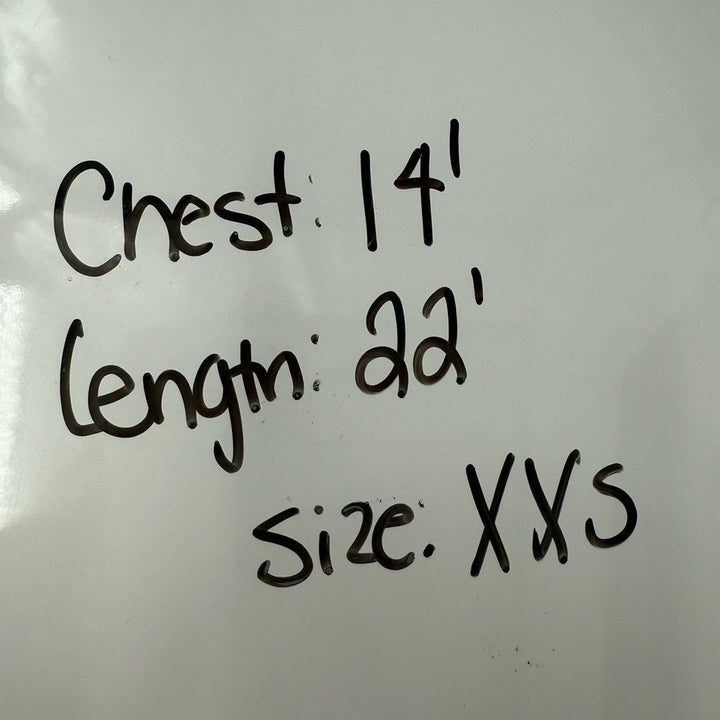 Chest: 14'
Length: 22'
Size: XXS